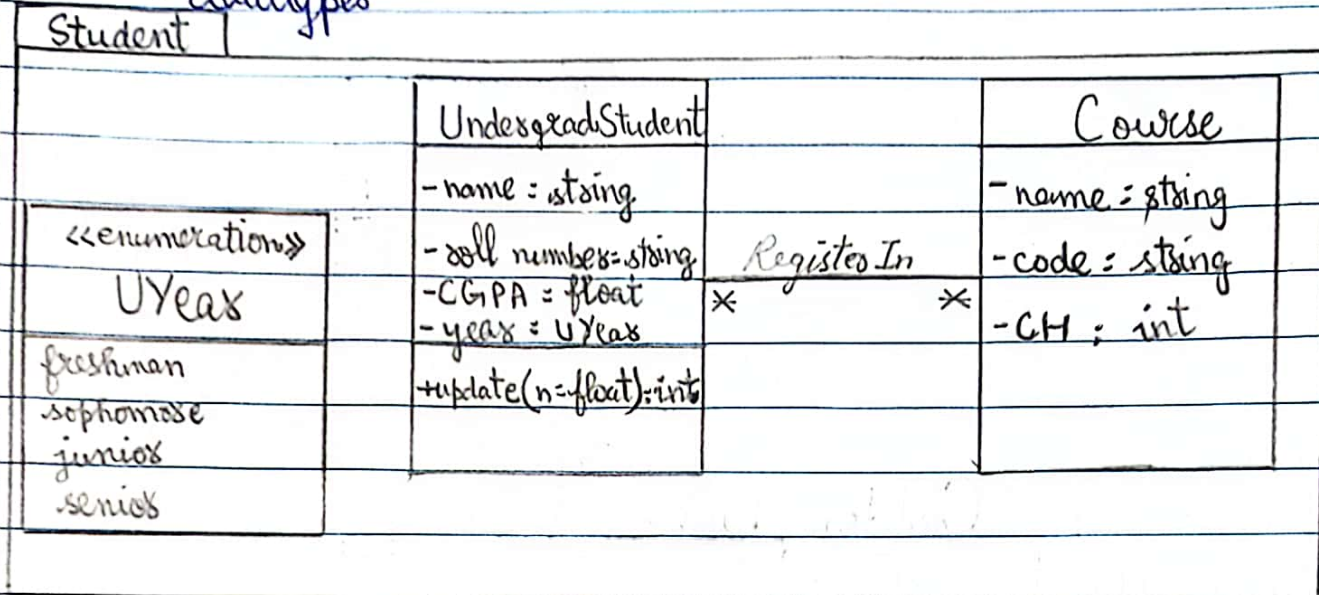 datatypes
Student
<<enumeration>>
UYear
freshman
sophomore
junior
senior
UndergradStudent
-name : string
-roll number: string
-CGPA : float
-year : UYear
+update(n:float):int
Register In
* *
Course
-name : string
-code : string
-CH : int